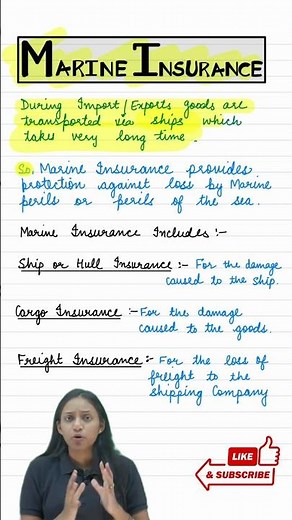 MARINE INSURANCE
During Import/Exports goods are
transported via ships which
takes very long time.
So, Marine Insurance provides
protection against loss by Marine
perils or perils of the sea.
Marine Insurance Includes:-
Ship or Hull Insurance:- For the damage
caused to the ship.
Cargo Insurance:- For the damage
caused to the goods.
Freight Insurance:- For the loss of
freight to the
Shipping Company
LIKE
& SUBSCRIBE